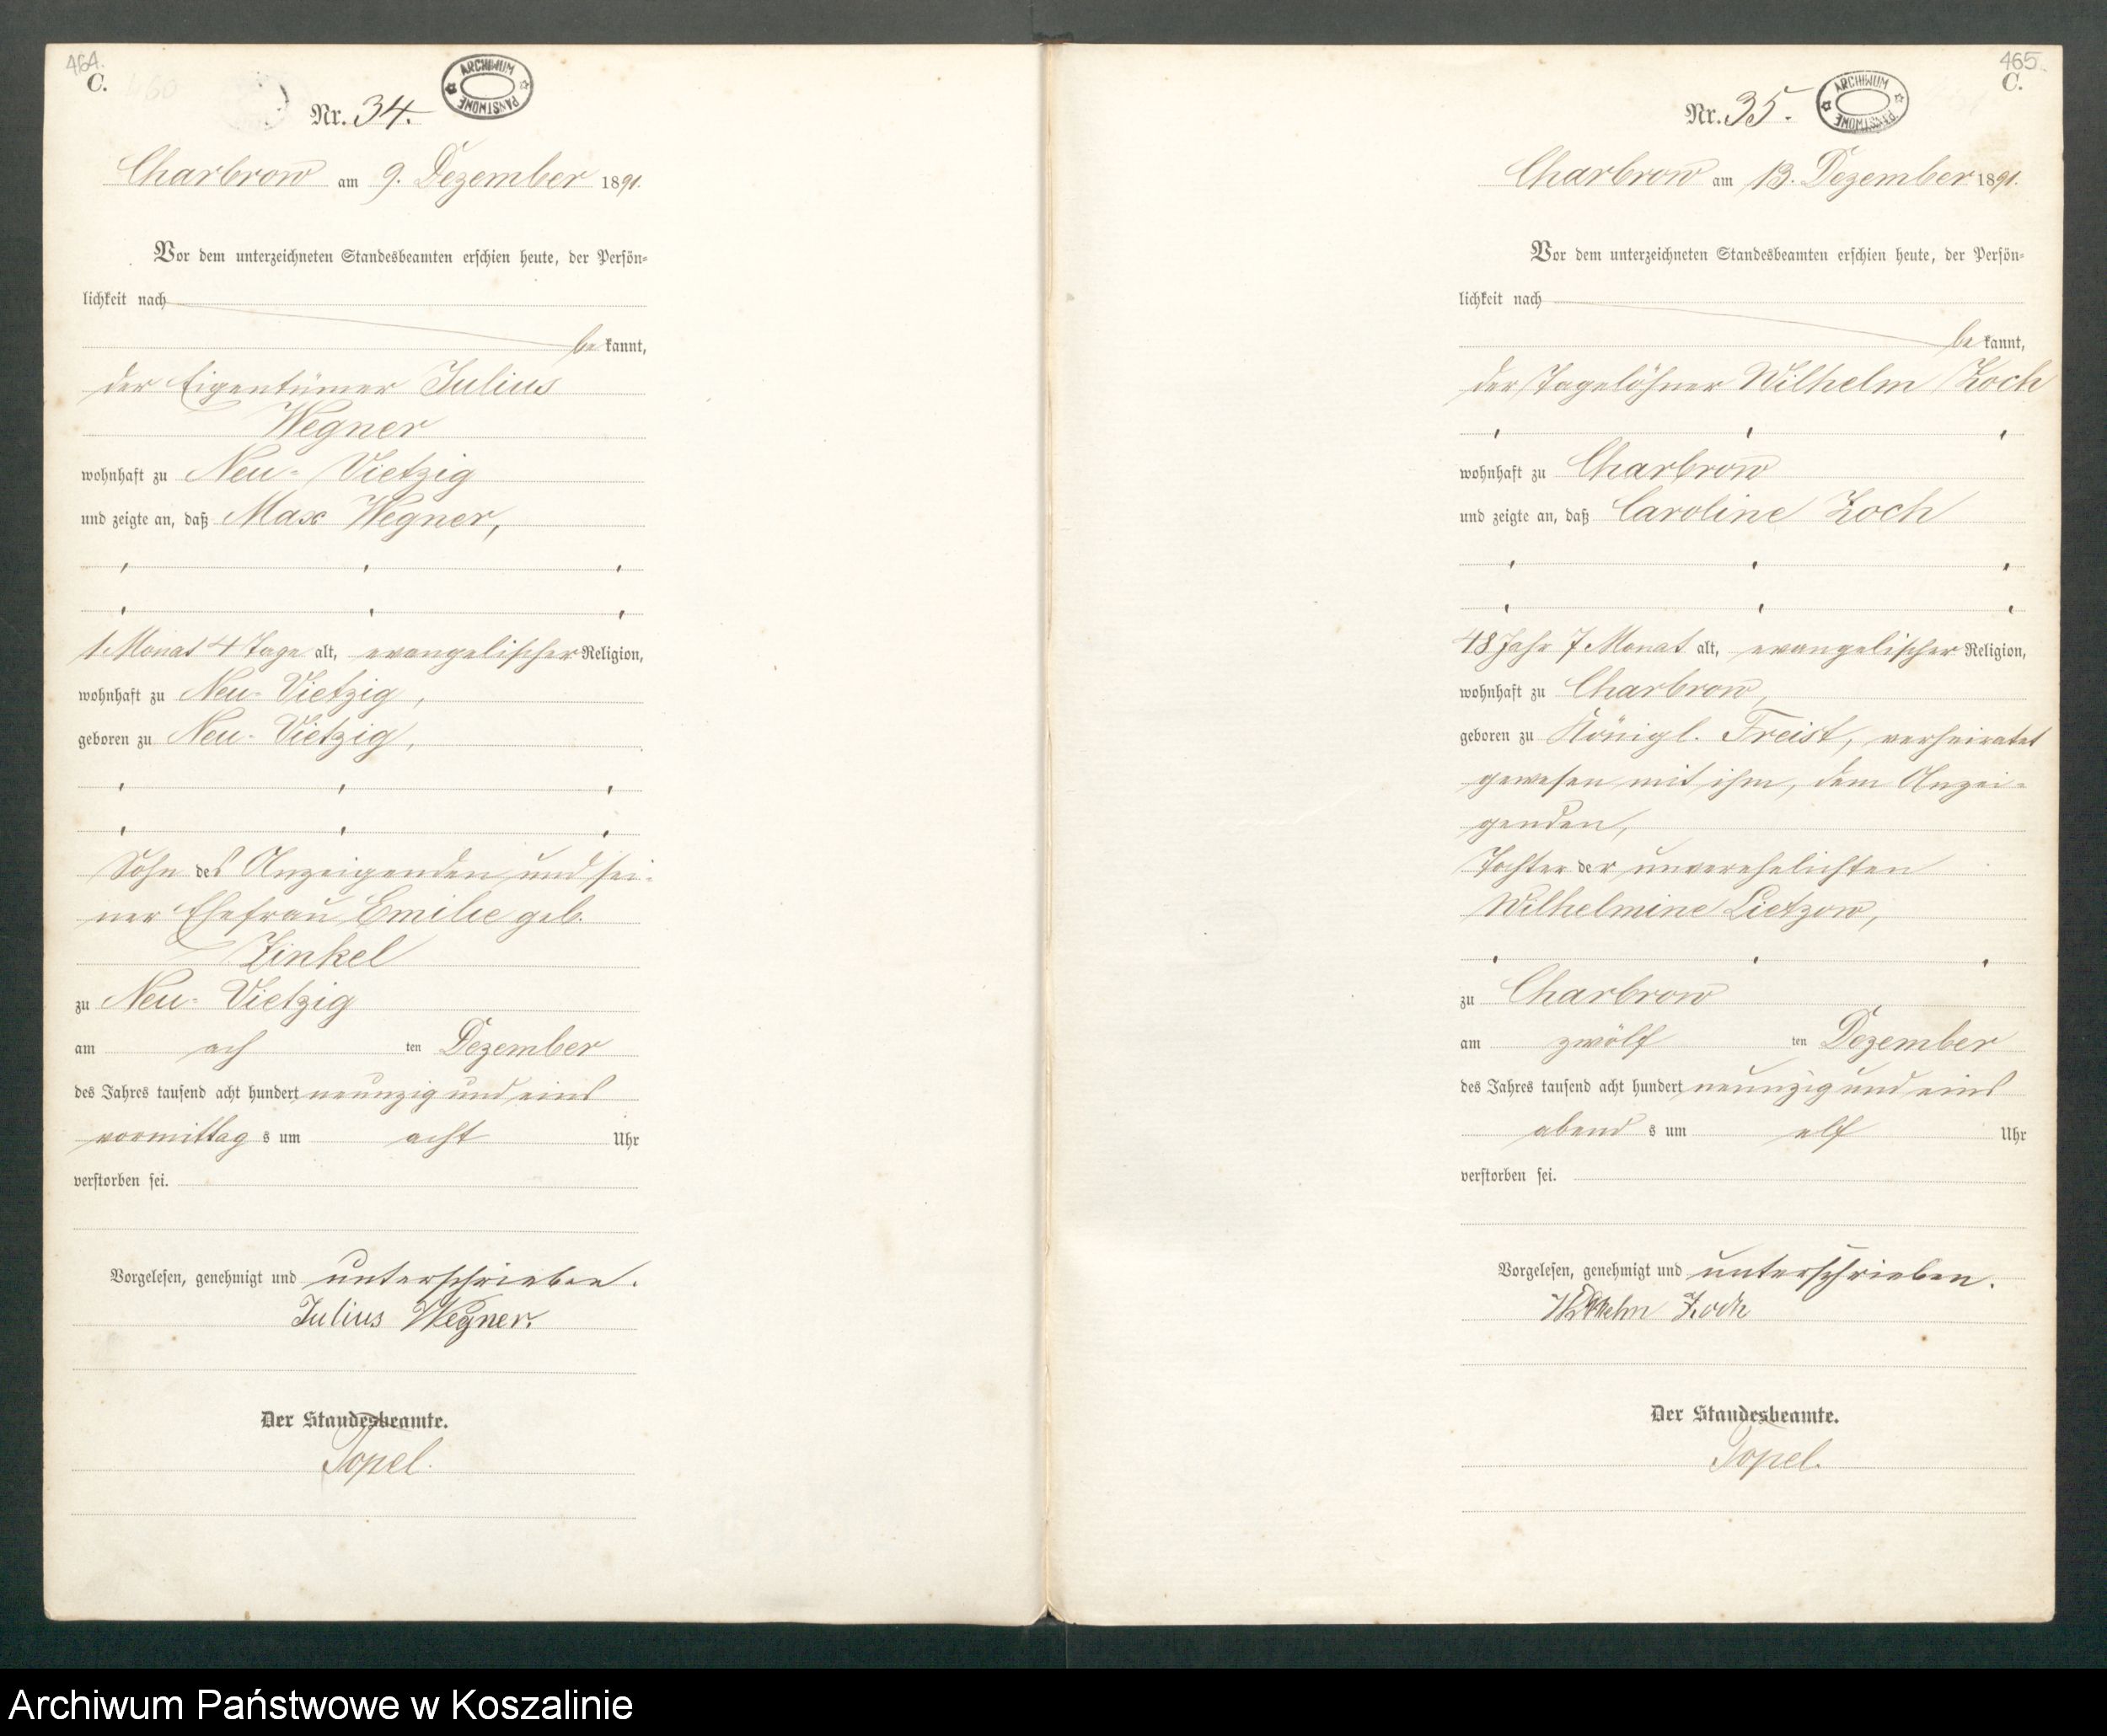 464.
C.
ARCHIWUM PAŃSTWOWE
Nr. 34.
Charbrow am 9. Dezember 1891.
Vor dem unterzeichneten Standesbeamten erschien heute, der Persön-
lichkeit nach
be kannt,
der Eigentümer Julius
Wegner
wohnhaft zu Neu-Vietzig
und zeigte an, daß Max Wegner,
1 Monat 4 Tage alt, evangelischer Religion,
wohnhaft zu Neu-Vietzig,
geboren zu Neu-Vietzig,
Sohn des Anzeigenden und sei-
ner Ehefrau Emilie geb.
Zinkel
zu Neu-Vietzig
am ach ten Dezember
des Jahres tausend acht hundert neunzig und eins
vormittag s um acht Uhr
verstorben sei.
Vorgelesen, genehmigt und unterschrieben.
Julius Wegner.
Der Standesbeamte.
Topel.
465
C.
ARCHIWUM PAŃSTWOWE
Nr. 35.
Charbrow am 13. Dezember 1891.
Vor dem unterzeichneten Standesbeamten erschien heute, der Persön-
lichkeit nach
be kannt,
der Tagelöhner Wilhelm Zoch
wohnhaft zu Charbrow
und zeigte an, daß Caroline Zoch
48 Jahr 7 Monat alt, evangelischer Religion,
wohnhaft zu Charbrow,
geboren zu Königl. Freist, verheiratet
gewesen mit ihm, dem Anzei-
genden,
Tochter der unverehelichten
Wilhelmine Lietzow,
zu Charbrow
am zwölf ten Dezember
des Jahres tausend acht hundert neunzig und eins
abend s um elf Uhr
verstorben sei.
Vorgelesen, genehmigt und unterschrieben.
Wilhelm Zoch
Der Standesbeamte.
Topel.
Archiwum Państwowe w Koszalinie